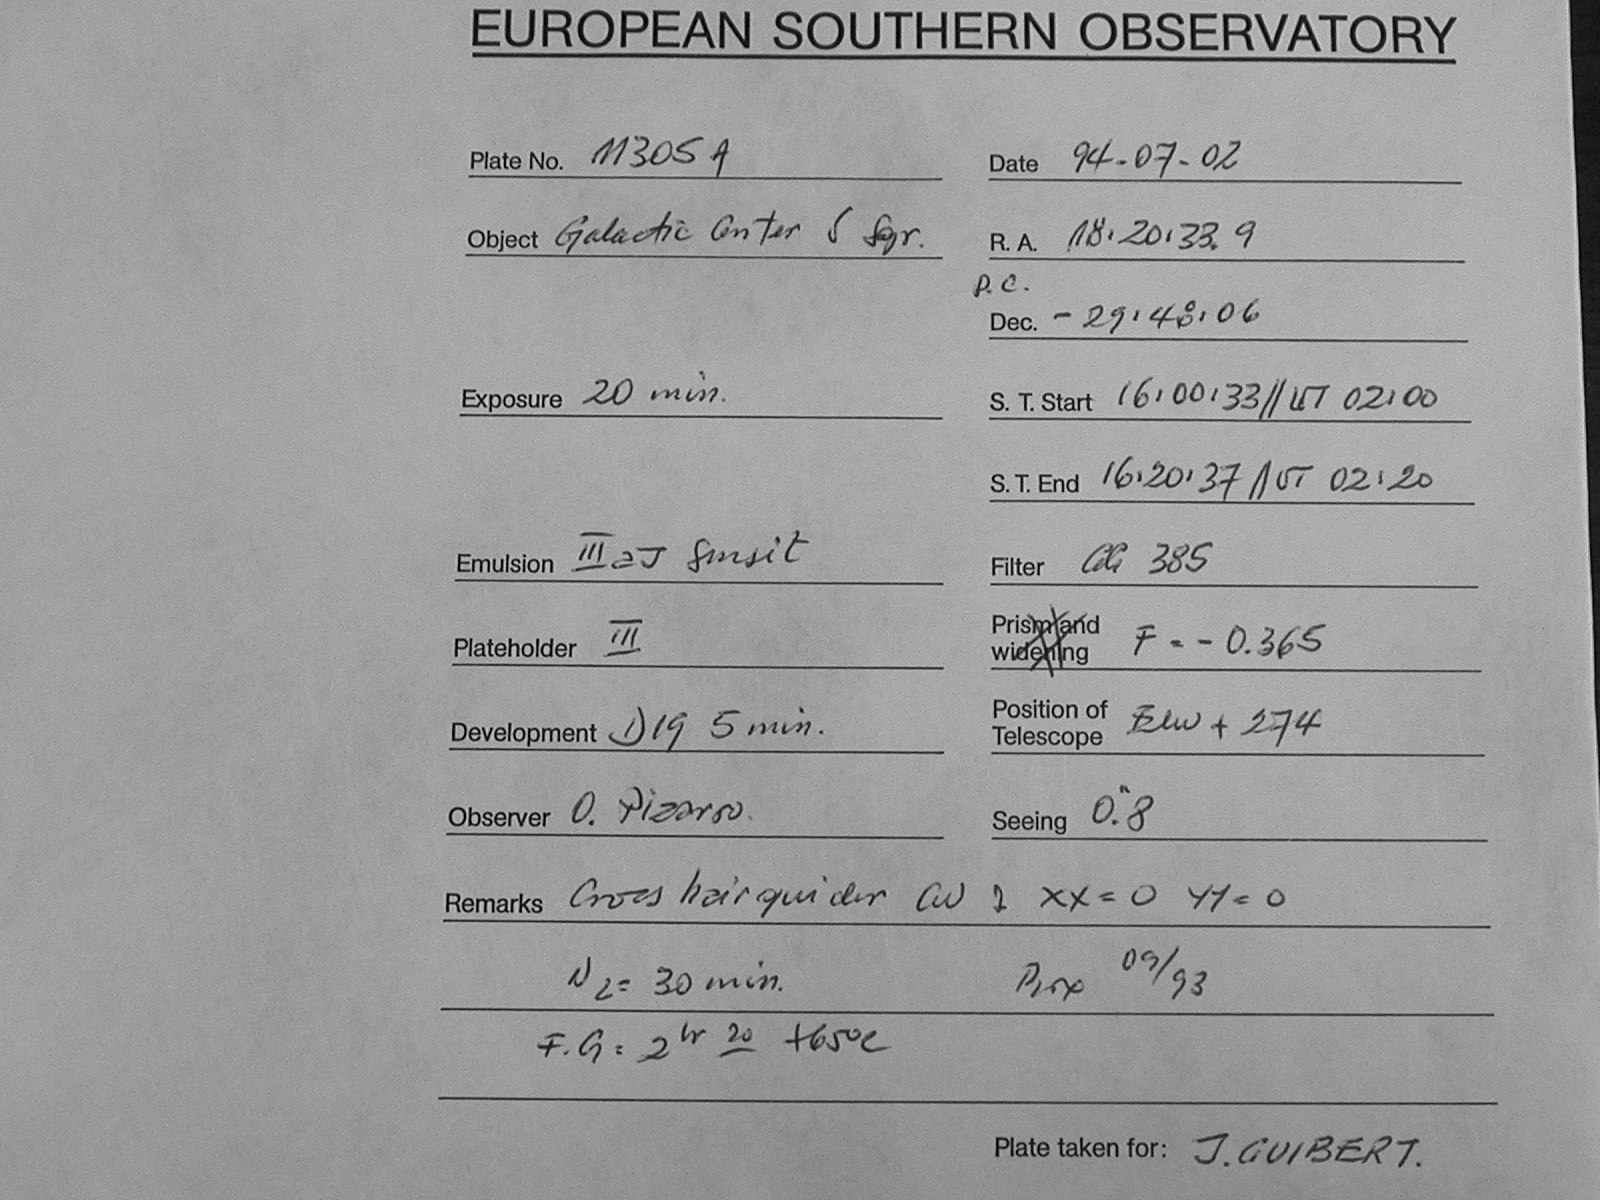 EUROPEAN SOUTHERN OBSERVATORY
Plate No. 11305 A Date 94-07-02
Object Galactic Center S Sgr. R. A. 18:20:33.9
P.C.
Dec. -29:48:06
Exposure 20 min. S. T. Start 16:00:33// UT 02:00
S. T. End 16:20:37 // UT 02:20
Emulsion III aJ Sensit Filter GG 385
Plateholder III Prism and widening F = -0.365
Development D19 5 min. Position of Telescope Elw + 274
Observer O. Pizarro. Seeing 0."8
Remarks Cross hair guider CW XX = 0 YY = 0
N2 = 30 min. 09/93
F.G = 2 hr 20 +65°C
Plate taken for: J. GUIBERT.